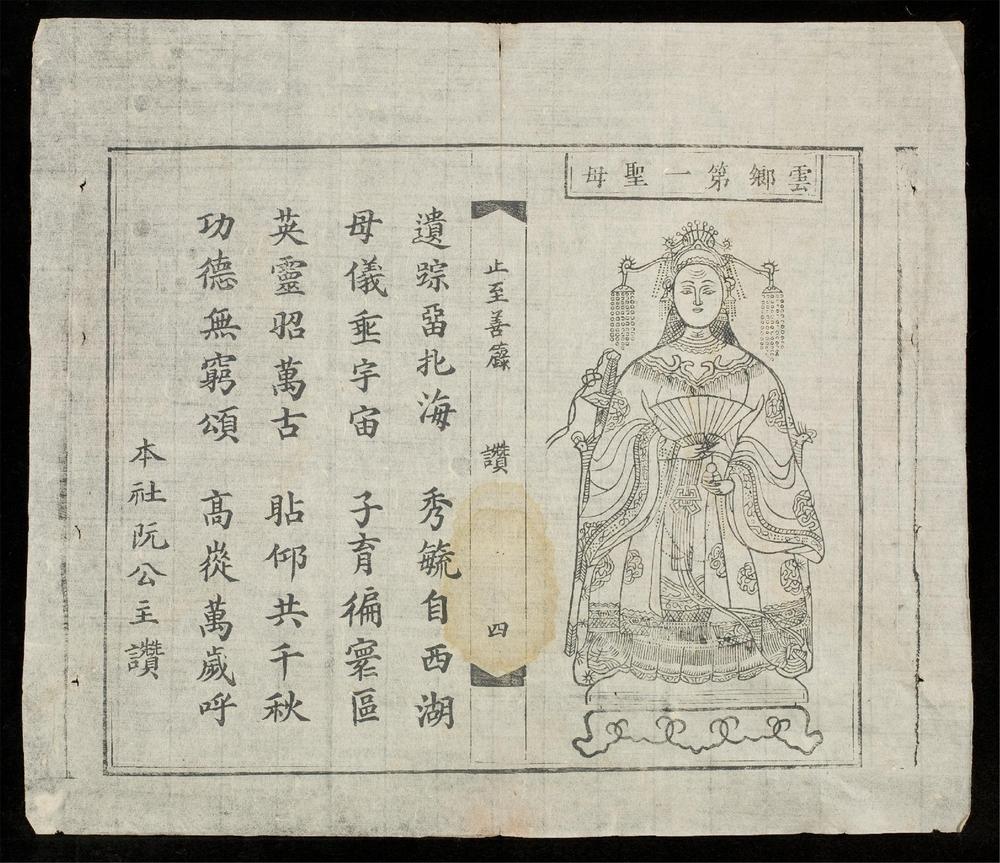 雲鄉第一聖母
止至善廠 讚 四
遺踪畱北海 秀毓自西湖
母儀垂宇宙 子育徧寰區
英靈昭萬古 瞻仰共千秋
功德無窮頌 高嵸萬歲呼
本社阮公主讚